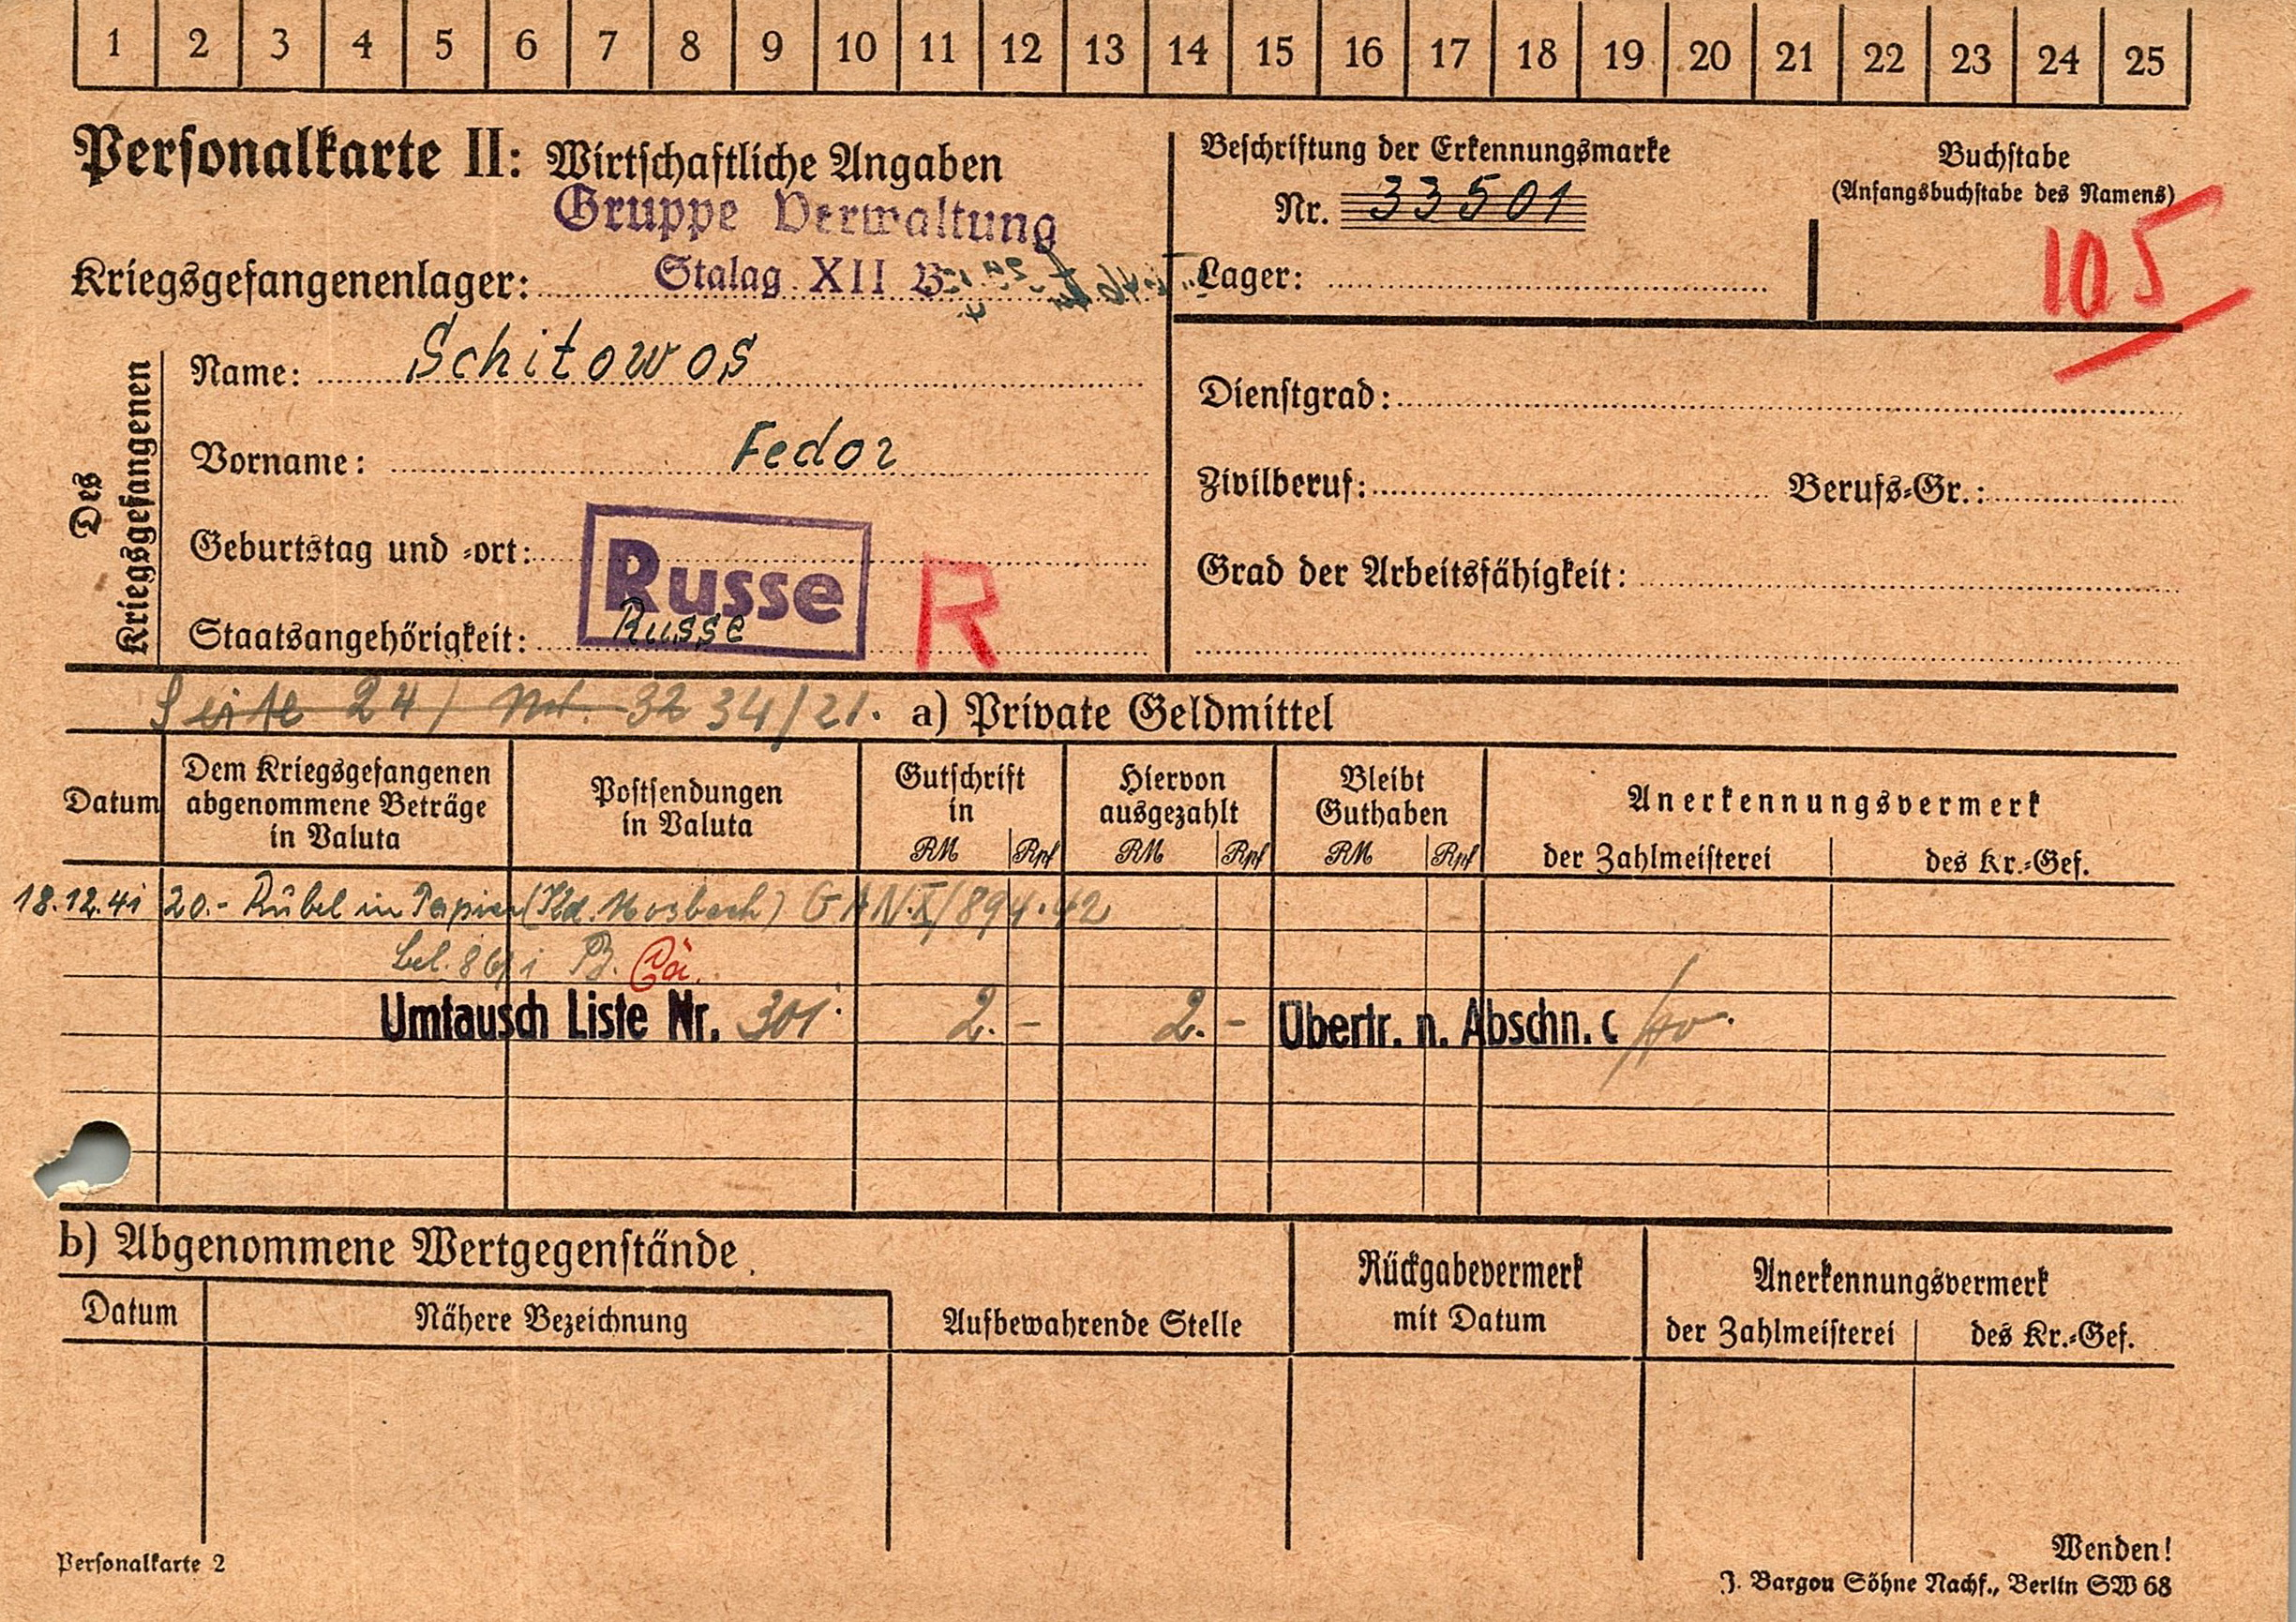 1 2 3 4 5 6 7 8 9 10 11 12 13 14 15 16 17 18 19 20 21 22 23 24 25
Personalkarte II: Wirtschaftliche Angaben
Gruppe Verwaltung
Kriegsgefangenenlager: Stalag XII B
Beschriftung der Erkennungsmarke
Nr. 33501
Lager:
Buchstabe
(Anfangsbuchstabe des Namens)
105
Des Kriegsgefangenen
Name: Schitowos
Vorname: Fedor
Geburtstag und -ort:
Russe
Staatsangehörigkeit: Russe
R
Dienstgrad:
Zivilberuf: Berufs-Gr.:
Grad der Arbeitsfähigkeit:
Seite 24/ 3234/21. a) Private Geldmittel
Datum
Dem Kriegsgefangenen
abgenommene Beträge
in Valuta
Postsendungen
in Valuta
Gutschrift
in
RM Rpf
Hiervon
ausgezahlt
RM Rpf
Bleibt
Guthaben
RM Rpf
Anerkennungsvermerk
der Zahlmeisterei des Kr.-Gef.
18.12.41 20.- Rubel in Papier (Kdo. Mosbach)
Umtausch Liste Nr. 301 2.- 2.- Übertr. n. Abschn. c
b) Abgenommene Wertgegenstände
Datum
Nähere Bezeichnung
Aufbewahrende Stelle
Rückgabevermerk
mit Datum
Anerkennungsvermerk
der Zahlmeisterei des Kr.-Gef.
Personalkarte 2
Wenden!
J. Bargou Söhne Nachf., Berlin SW 68